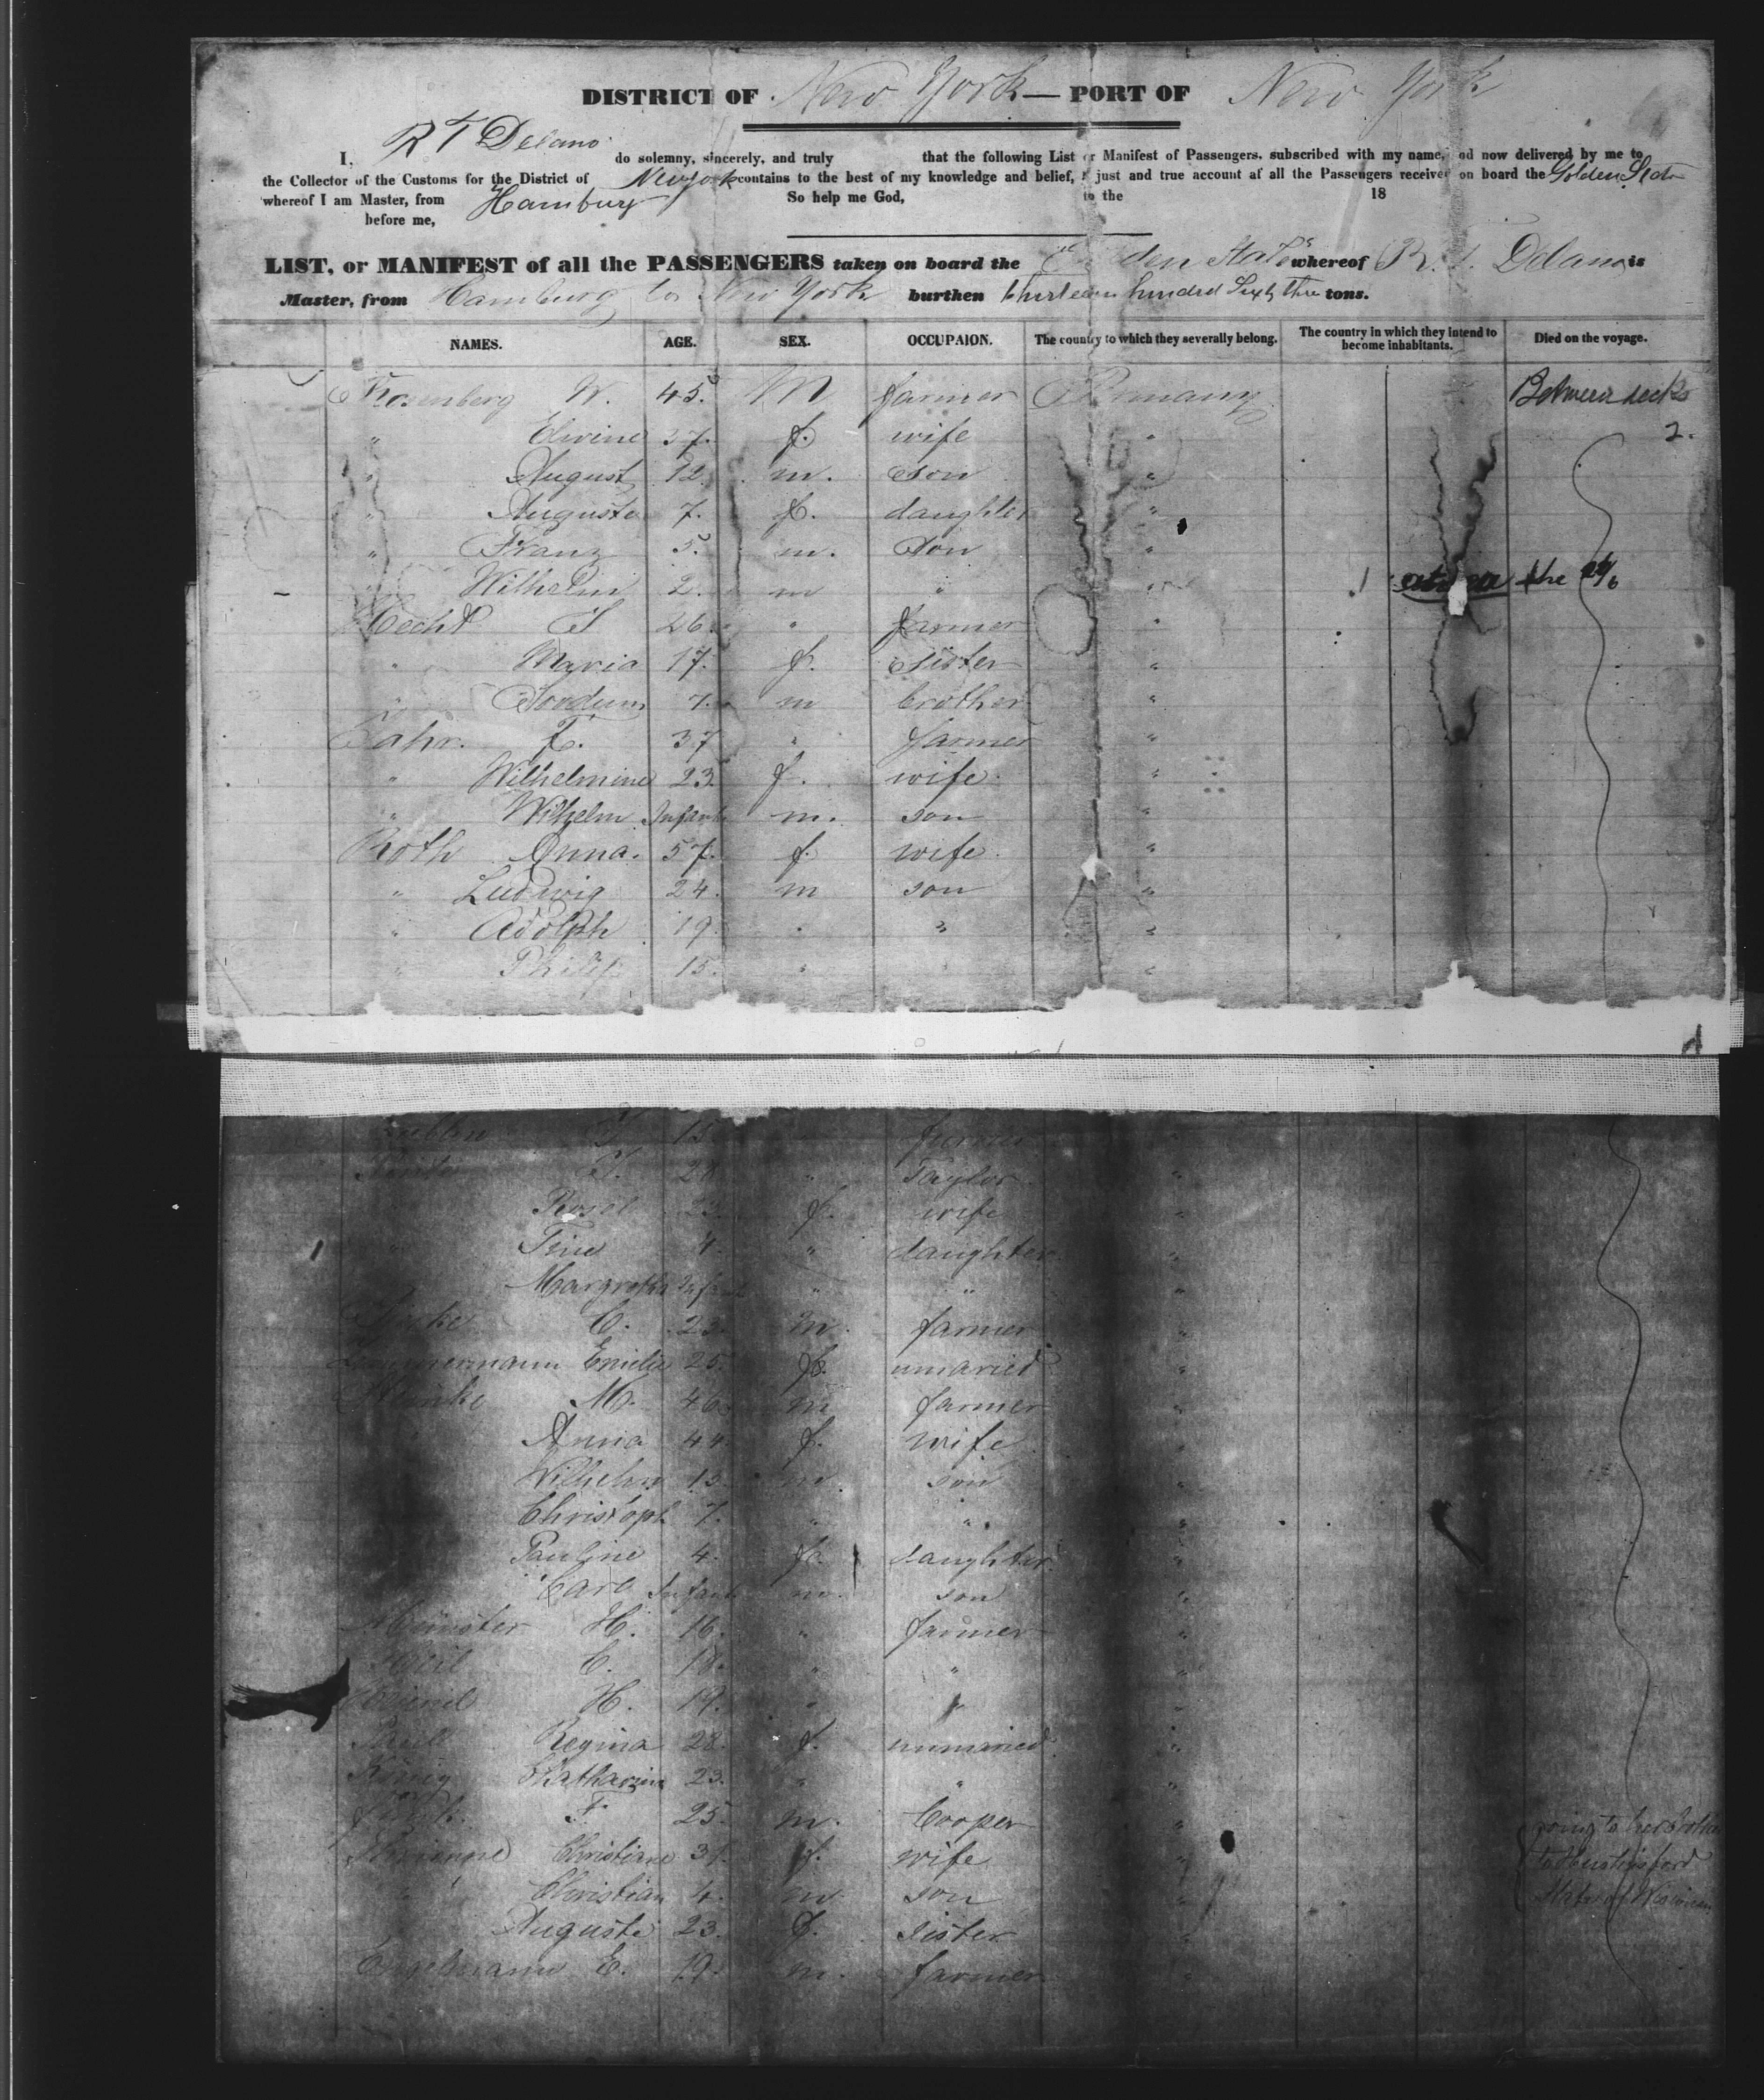 DISTRICT OF New York — PORT OF New York
I, R T Delano do solemny, sincerely, and truly that the following List or Manifest of Passengers, subscribed with my name, and now delivered by me to
the Collector of the Customs for the District of New York contains to the best of my knowledge and belief, a just and true account af all the Passengers received on board the Golden State
whereof I am Master, from Hamburg So help me God, to the 18
before me,
LIST, or MANIFEST of all the PASSENGERS taken on board the den State whereof R. T. Delano is
Master, from Hamburg to New York burthen thirteen hundred Sixty three tons.
NAMES. AGE. SEX. OCCUPAION. The country to which they severally belong. The country in which they intend to become inhabitants. Died on the voyage.
Rosenberg W. 45. M farmer Germany Between decks
" 37. f. wife " 2.
" August 12. m. son "
" Auguste 7. f. daughter "
" Franz 5. m. son "
" Wilhelm 2. m " " 1 the
Hecht 26. " farmer "
" Maria 17. f. sister "
" 7. m brother "
F. 37 " farmer "
" Wilhelmine 23. f. wife "
" Wilhelm Infant m. son "
Roth Anna. 57. f. wife "
" Ludwig 24. m son "
" Adolph 19. " " "
" Philip 15. " "
15. farmer "
28. " Taylor "
Rosel 23. f. wife "
" Tine 4. " daughter "
Margretha Infant " " "
C. 23. m. farmer "
Emilie 25. f. unmaried "
M. 46. m farmer "
Anna 44. f. wife "
Wilhelm 13. m. son "
Christoph 7. " " "
Pauline 4. f. daughter "
Carl Infant m. son "
Münster H. 16. " farmer "
C. 18. " " "
H. 19. " " "
Regina 28. f. unmaried "
König Katharina 23. " " "
F. 25. m. Cooper "
Christiane 31. f. wife "
" Christian 4. m. son "
Auguste 23. f. sister "
Engelmann E. 19. m. farmer "
going to her brother
to Hustisford
State of Wisconsin